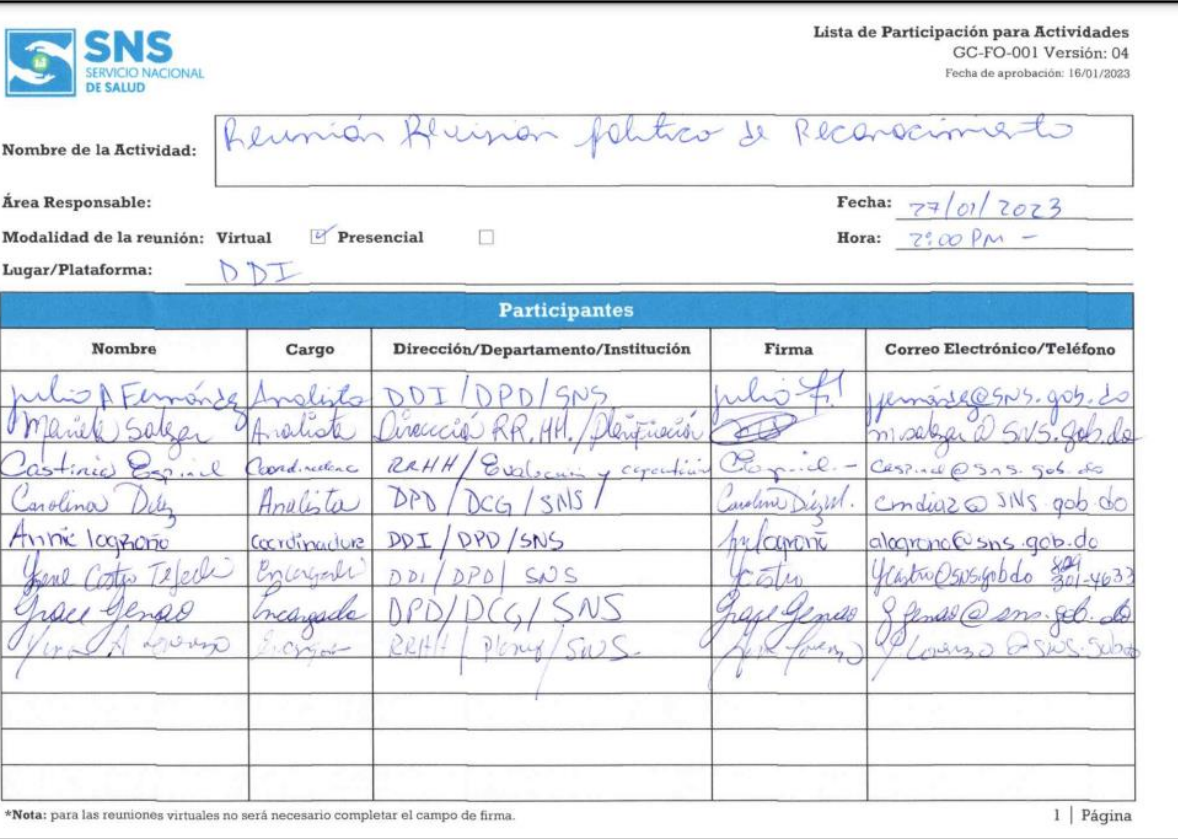 SNS
SERVICIO NACIONAL
DE SALUD
Lista de Participación para Actividades
GC-FO-001 Versión: 04
Fecha de aprobación: 16/01/2023
Nombre de la Actividad: Reunión Revision politico de Reconocimiento
Área Responsable:
Fecha: 27/01/2023
Modalidad de la reunión: Virtual ☑ Presencial ☐
Hora: 2:00 PM -
Lugar/Plataforma: DDI
Participantes
Nombre Cargo Dirección/Departamento/Institución Firma Correo Electrónico/Teléfono
Julio A Fernández Analista DDI/DPD/SNS Julio F. @SNS.gob.do
Mariela Salazar Analista Dirección RR.HH./Planificación m.salazar@SNS.gob.do
Espinal Coordinadora RRHH/Evaluación y capacitación @sns.gob.do
Carolina Díaz Analista DPD/DCG/SNS/ Carolina Díaz cmdiaz@SNS.gob.do
Annie logroño coordinadora DDI/DPD/SNS alogrono@sns.gob.do
Castro Tejeda Encargada DDI/DPD/SNS YCastro YCastro@sns.gob.do 809 301-4633
Grace Genao Encargada DPD/DCG/SNS Grace Genao ggenao@sns.gob.do
A Lorenzo RRHH/ /SNS Lorenzo Lorenzo@SNS.gob.do
*Nota: para las reuniones virtuales no será necesario completar el campo de firma.
1 | Página